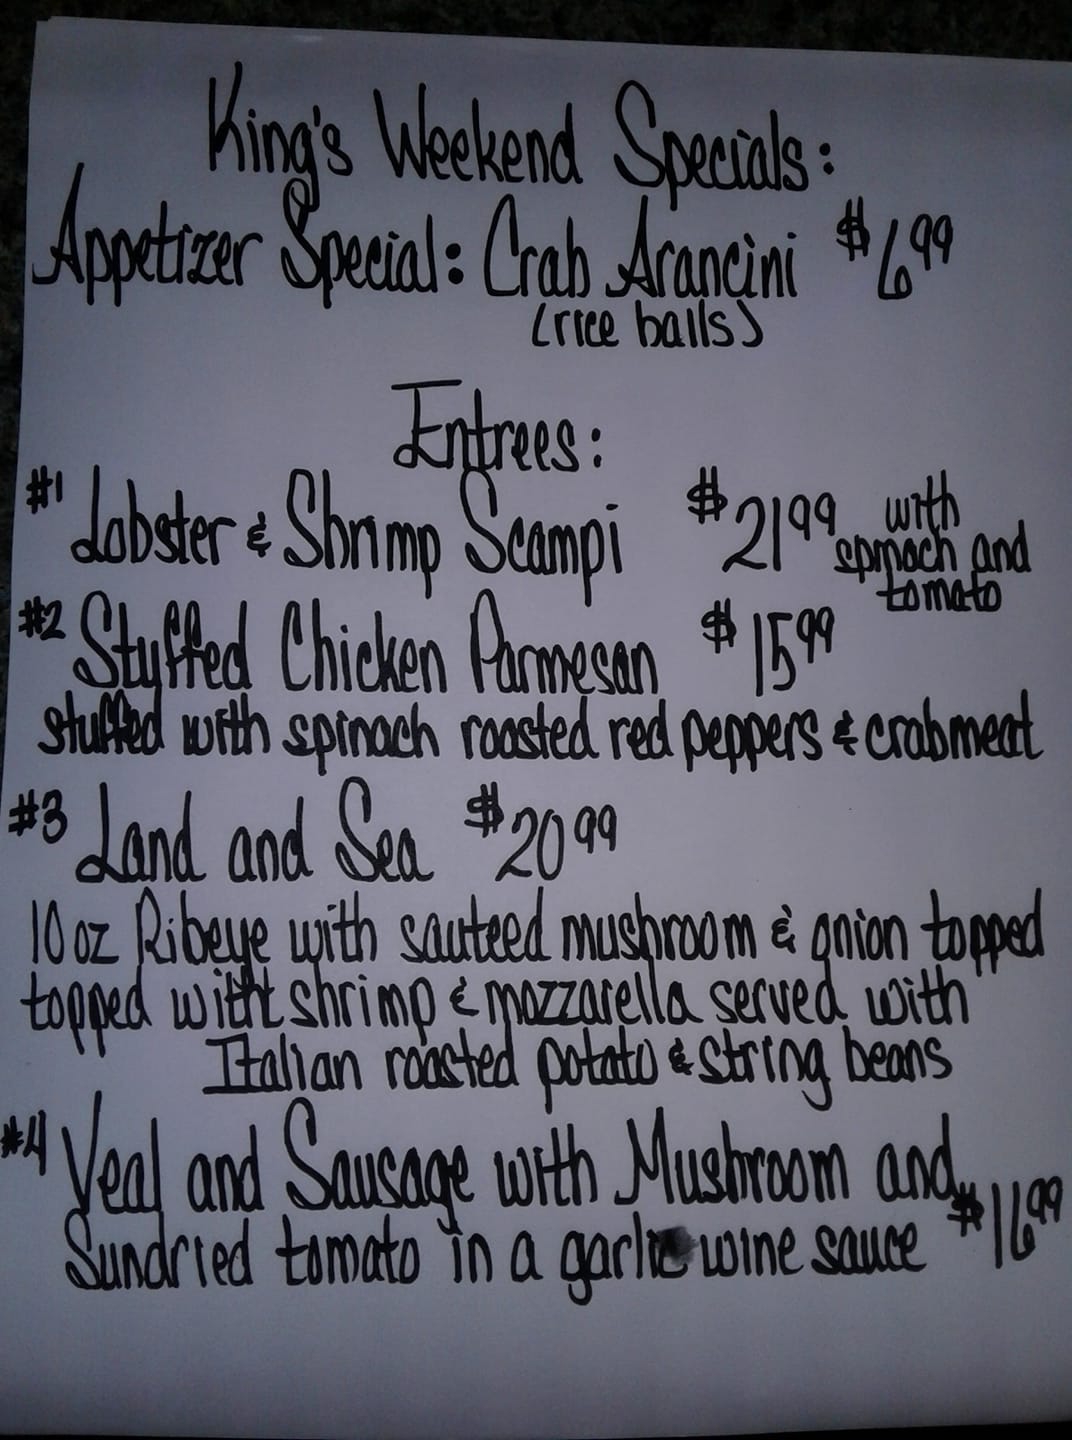 King's Weekend Specials:
Appetizer Special: Crab Arancini $6.99
(rice balls)
Entrees:
#1 Lobster & Shrimp Scampi $21.99 with spinach and tomato
#2 Stuffed Chicken Parmesan $15.99
stuffed with spinach roasted red peppers & crabmeat
#3 Land and Sea $20.99
10 oz Ribeye with sauteed mushroom & onion topped
topped witht shrimp & mozzarella served with
Italian roasted potato & string beans
#4 Veal and Sausage with Mushroom and
Sundried tomato in a garlic wine sauce $16.99